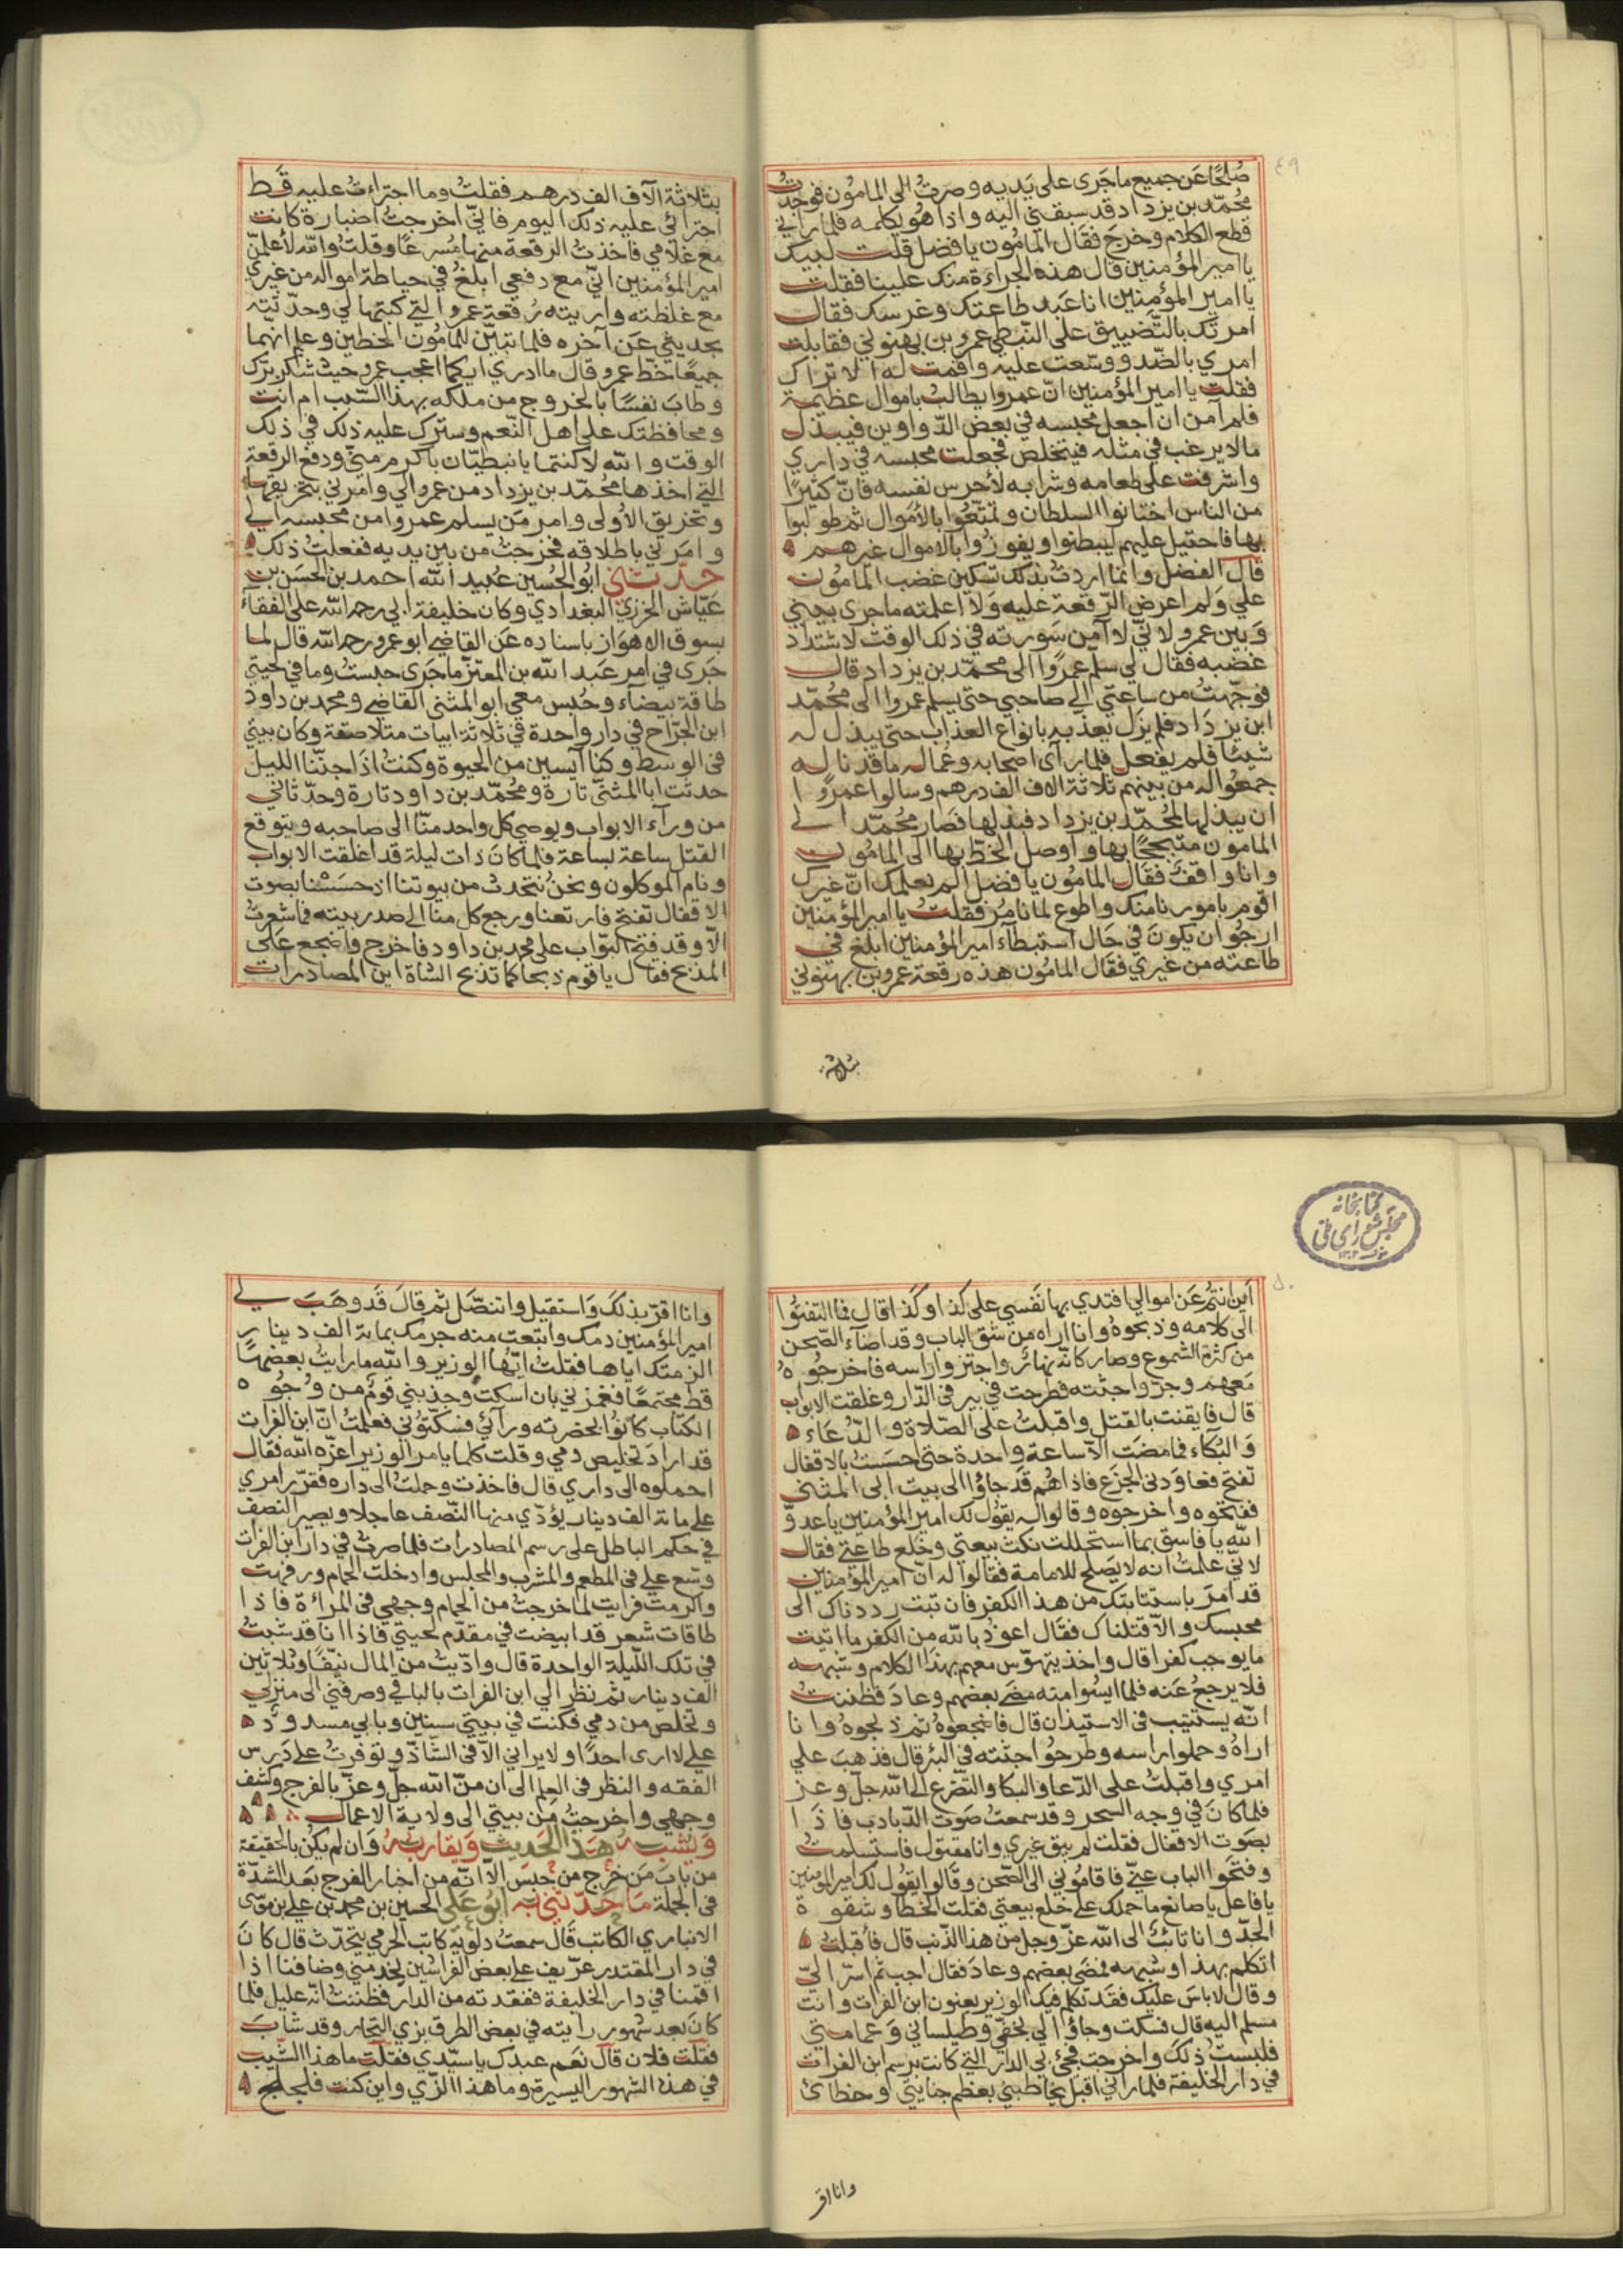 ٤٩
صُلْحًا عَن جميع ما جَرى على يَديه وصرتُ الى المامُون فوجدتُ
محُمّد بن يزداد قد سبقني اليه واذا هُو يكالمه فلما رآني
قطع الكلام وخرج فقال المامُون يا فضل قلت لبيك
يا امير المؤمنين قال هذه الجراءة منك علينا فقلت
يا امير المؤمنين انا عَبد طاعتك وغرسك فقال
امرتك بالتضييق على النّبطي عمرو بن بهنوني فقابلت
امري بالضّد ووسّعت عليه واقمت له الا تراك
فقلت يا امير المؤمنين انّ عمروا يطالب باموال عظيمة
فلم آمن ان اجعل محبسه في بعض الدّواوين فيبذل
مالا يرغب في مثله فيتخلص فجعلت محبسه في داري
واشرفت على طعامه وشرابه لأحرس نفسه فانّ كثيرًا
من الناس اختانوا السلطان وتمتّعُوا بالأموال ثم طولبوا
بها فاحتيل عليهم ليبطنوا ويفوزُوا بالاموال غيرهم
قال الفضل وانما اردت بذلك تسكين غضب المامُون
علي وَلم اعرض الرّقعة عليه وَلا اعلمته ما جرى بيني
وَبين عمرو لانّي لا آمن سَورته في ذلك الوقت لاشتداد
غضبه فقال لي سلّم عمرًوا الى محمّد بن يزداد قال
فوجّهتُ من ساعتي الي صاحبي حتى يسلم عمروا الى محُمّد
ابن يزدَاد فلم يزل يعذبه بانواع العذاب حتى يبذل له
شيئًا فلم يفعل فلما رآى اصحابه وعُماله ما قد ناله
جمعُوا له من بينهم ثلاثة الاف الف درهم وسالوا عمرًوا
ان يبذلها لمُحمّد بن يزداد فبذلها فصَار محُمّد الي
المامون متبجّحًا بها واوصل الخطّ بها الى المامُون
وانا واقفٌ فقال المامُون يا فضل الم نعلمك انّ غيرك
اقوم بامورنا منك واطوع لما نامُر فقلتُ يا امير المؤمنين
ارجُوا ن يكونَ في حَال استبطاء امير المؤمنين ابلغ في
طاعته من غيري فقال المامُون هذه رقعة عمرو بن بهنوني
بثلاثة
بثلاثة آلاف الف درهم فقلتُ وما اجتراءتُ عليه قَط
اجترائى عليه ذلك اليوم فانيّ اخرجتُ اضبارة كانت
مع غلامي فاخذتُ الرقعة منها مُسرعًا وقلتُ والله لأعلمنّ
امير المؤمنين انّي مع دفعي ابلغُ في حياطة امواله من غيري
مع غلظته واريته رُقعة عمرو التي كتبها لي وحدّثته
بحديثي عَن آخره فلما تبيّن للمامُون الخطين وعلم انهما
جميعًا خطّ عمرو قال ما ادري ايكما اعجب عمرو حيث شكر برّك
وطابَ نفسًا بالخروج من ملكه بهذا السّبب ام انت
ومحافظتك على اهل النّعم وسترك عليه ذلك في ذلك
الوقت والله لا كنتما يا نبطيّان باكرم منّي ودفع الرقعة
التي اخذها محُمّد بن يزداد من عمرو الي وامرني بتخريقها
وتخريق الأولى وامر مَن يسلم عمروا من محبسه الي
وامَرني باطلاقه فخرجتُ من بين يديه ففعلتُ ذلك
حدّثني ابُو الحُسين عُبيد الله احمد بن الحسَن بن
عيّاش الخرزي البغدادي وكان خليفة ابي رحمه الله على القضآء
بسوق الاهوَاز باسناده عَن القاضي ابو عمرو رحمه الله قال لما
جَرى في امر عَبد الله بن المعتزّ ما جَرى حبستُ وما في لحيتي
طاقة بيضآء وحُبس معي ابو المثنى القاضي ومحمد بن داود
ابن الجرّاح في دار واحدة في ثلاثة ابيات متلاصقة وكان بيتي
في الوسَط وكنّا آيسين من الحيوة وكنتُ اذا جنّنا الليل
حدثت ابا المثنّى تارة ومُحمّد بن داود تارة وحدّثاني
من ورآء الابواب ويوصي كل واحد منّا الى صاحبه ويتوقع
القتل ساعة بساعة فلما كانَ ذات ليلة قد اغلقت الابواب
ونام الموكلون ونحنُ نتحدث من بيوتنا اذ حسَسْنا بصوت
الاقفال تفتح فارتعنا ورجع كل منا الى صدر بيته فما شعرتُ
الّا وقد فتح البوّاب على محمد بن داود فاخرج واضجع عَلى
المذبح فقال يا قوم ذبحا كما تذبح الشاة اين المصادرات
كتابخانه
مجلس شوراى ملى
٥٠
اَين انتُم عَن اموالي افتدي بها نفسي على كذا وكذا قال فما التفتوُا
الى كلامه وذبحوهُ وانا اراه من شق الباب وقد اضآء الصّحن
من كثرة الشموع وصار كانّه نهارٌ واجتزوا راسه فاخرجُوه
مَعهم وجرّوا جثته فطرحت في بير في الدّار وغلقت الابواب
قال فايقنت بالقتل واقبلتُ على الصّلاة والدّعَاء
وَالبُكاء فما مضَت الّا ساعة واحدة حتى احسَستُ بالاقفال
تفتح فعاوَدني الجزَع فاذا هُم قَد جاؤُا الى بيت ابي المثنى
ففتحوه واخرجوه وقالوا له يقُول لك امير المؤمنين يا عدوّ
الله يا فاسق بما استحللت نكث بيعتي وخلع طاعتي فقال
لانّي علمتُ انه لا يصَلح للامامة فقالوا له انّ امير المؤمنين
قد امَر باستتابتك من هذا الكفر فان تبت رددناك الى
محبسك والّا قتلناك فقال اعوذ بالله من الكفر ما اتيت
ما يوجب كفرا قال واخذ يتهوّس معهم بهذا الكلام وشبهه
فلا يرجعُ عَنه فلما ايسُوا منه مضَى بعضهم وعادَ فظننتُ
انّه يستتيب في الاستيذان قال فاضجعوهُ ثم ذبحوهُ وانا
اراهُ وحملوا راسه وطرحُوا جثته في البئر قال فذهبَ علي
امري واقبلتُ على الدّعا والبكا والتضرّع الى الله جلّ وعز
فلما كانَ في وجه السحر وقد سمعتُ صَوت الدّبادب فاذا
بصَوت الاقفال فقلتُ لم يبق غيري وانا مقتول فاستسلمتُ
وفتحَوا الباب عنّي فاقامُوني الى الصّحن وقالوا يقُول لك امير المؤمنين
يا فاعل يا صانع ما حملك على خلع بيعتي فقلت الخطا وشقوة
الجدّ وانا تائبٌ الى الله عزّ وجل من هذا الذّنب قال فأقبلتُ
اتكلم بهذا وشبهه فمضَى بعضهم وعادَ فقال اجب ثم اسرّ اليّ
وقال لا باسَ عليك فقَد تكلم فيك الوزير يعنون ابن الفرات وانت
مسلم اليه قال فسكت وجاؤا الي بخفّي وطيلساني وَعمامتي
فلبستُ ذلكَ واخرجت فجئ بي الدار التي كانت برسم ابن الفرات
في دار الخليفة فلما رآني اقبل يخاطبني بعظم جنايتي وخطائ
وانا اقر
وانا اقرّ بذلكَ وَاستقيل واتنصّل ثم قالَ قَد وهَبَ لي
امير المؤمنين دمك وابتعت منه جرمك بماية الف دينار
الزمتك اياها فقلتُ ايّها الوزير والله ما رايتُ بعضهَا
قط مجتمعًا فغمزني بان اسكت وجذبني قومٌ من وُجُوه
الكتّاب كانوُا بحضرته ورآئي فسكتوُني فعلمتُ انّ ابن الفرات
قد ارادَ تخليص دمي وقلت كلما يامر الوزير اعزّه الله فقال
احملوه الى داري قال فاخذت وحملت الى داره فقرّر امري
على ماية الف دينار يؤدّي منها النّصف عاجلا ويصير النصف
في حكم الباطل على رسم المصادرات فلما صرتُ في دار ابن الفرات
وسّع علي في المطعم والمشرب والمجلس وادخلت الحمام ورفهت
واكرمت فرايت لما خرجتُ من الحمام وجهي في المراة فاذا
طاقات شعر قد ابيضت في مقدّم لحيتي فاذا انا قد شبتُ
في تلك اللّيلة الواحدة قال وادّيتُ من المال نيّفًا وثلاثين
الف دينار ثم نظر الي ابن الفرات بالباقي وصرفني الى منزلي
وتخلص من دمي فكنت في بيتي سنين وبابي مسدودٌ
على لا ارى احدًا ولا يراني الّا في الشّاذّ وتوفرتُ على دَرس
الفقه والنظر في العلم الى ان منّ الله جلّ وعزّ بالفرج وكشف
وجهي واخرجتُ مِن بيتي الى ولاية الاعمال
وَيُشبهُ هَذا الحَديث وَيقاربهُ وَان لم يكن بالحقيقة
من بابَ مَن خرج من حبس الّا انّه من اخبار الفرج بعَد الشدّة
في الجملة مَا حَدّثني به ابُو عَلي الحسين بن محمد بن علي بن موسَى
الانباري الكاتب قال سمعتُ دلويَه كاتب الحرمي يتحدّث قال كانَ
في دار المقتدر عرّيف على بعض الفراشين يخدمني وضافنا اذا
اقمنا في دار الخليفة ففقدته من الدّار فظننتُ انّه عليل فلمّا
كانَ بعد شهور رايته في بعض الطرق بزي التجار وقد شابَ
فقلت فلان قال نعَم عبدك يا سيّدي فقلت ما هذا الشّيب
في هذه الشهور اليسيرة وما هذا الزّي واين كنت فلجلج